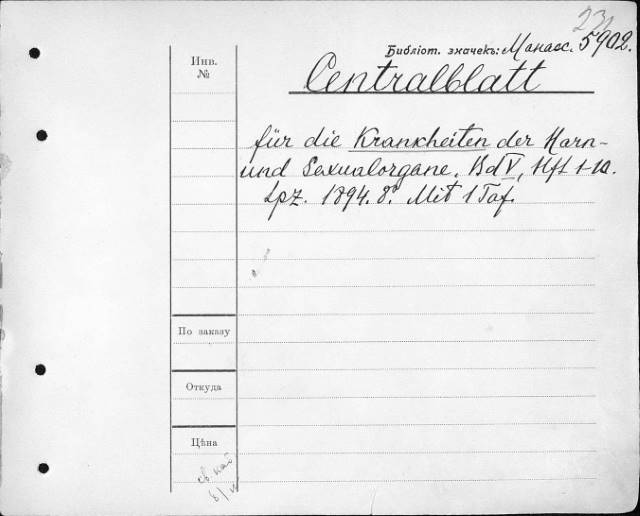 231
Библіот. значекъ: Манасс. 5902.
Инв.
№
Centralblatt
für die Krankheiten der Harn-
und Sexualorgane. Bd V, Hft 1-10.
Lpz. 1894. 8º. Mit 1 Taf.
По заказу
Откуда
Цѣна